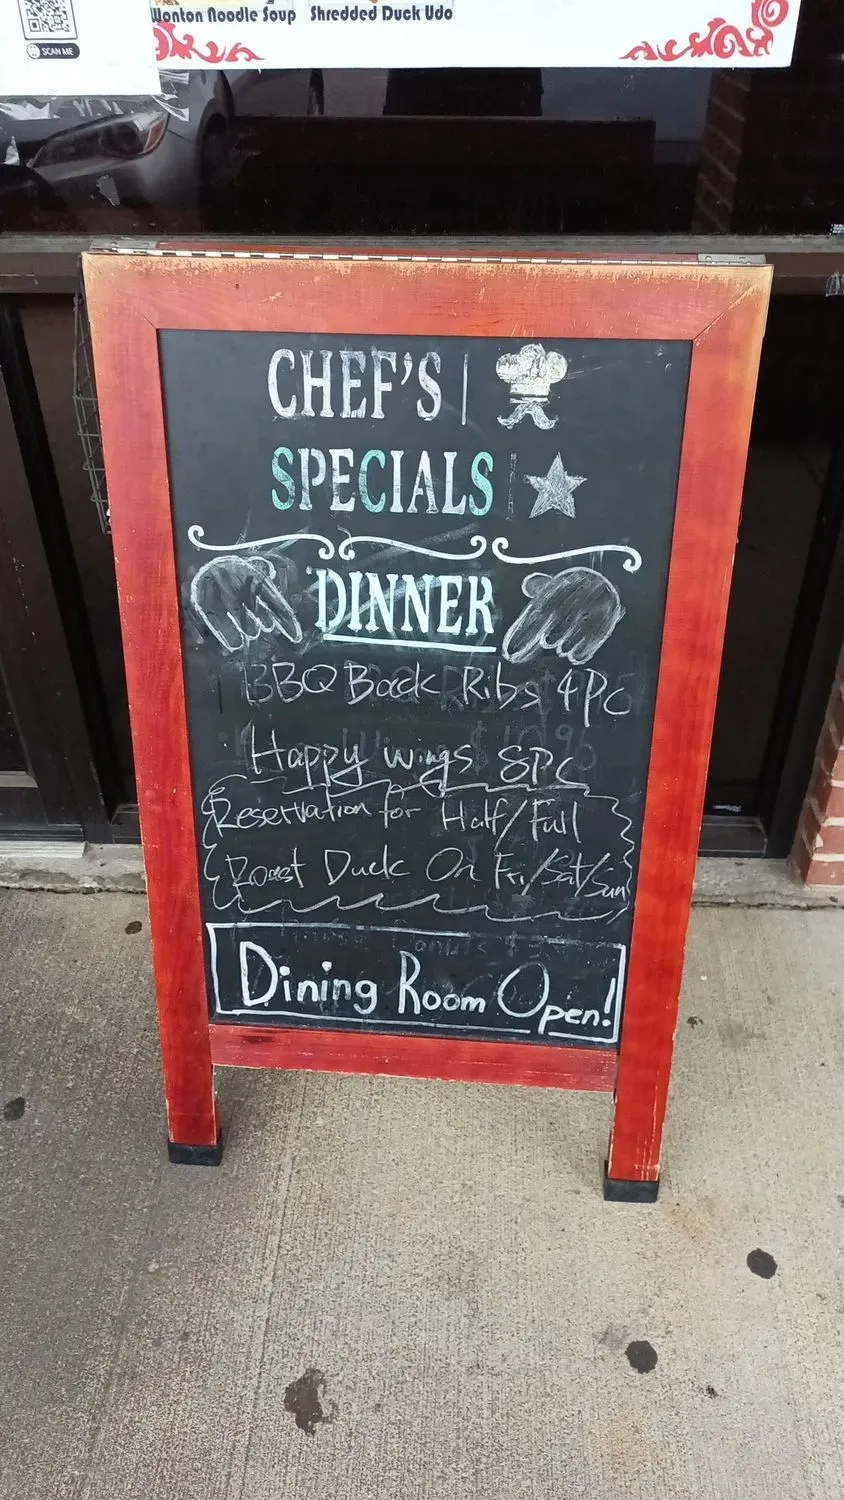 SCAN ME
Wonton Noodle Soup Shredded Duck Udo
CHEF'S
SPECIALS
DINNER
BBQ Back Ribs 4Pc
Happy wings 8Pc
Reservation for Half/Full
Roast Duck On Fri/Sat/Sun
Dining Room Open!